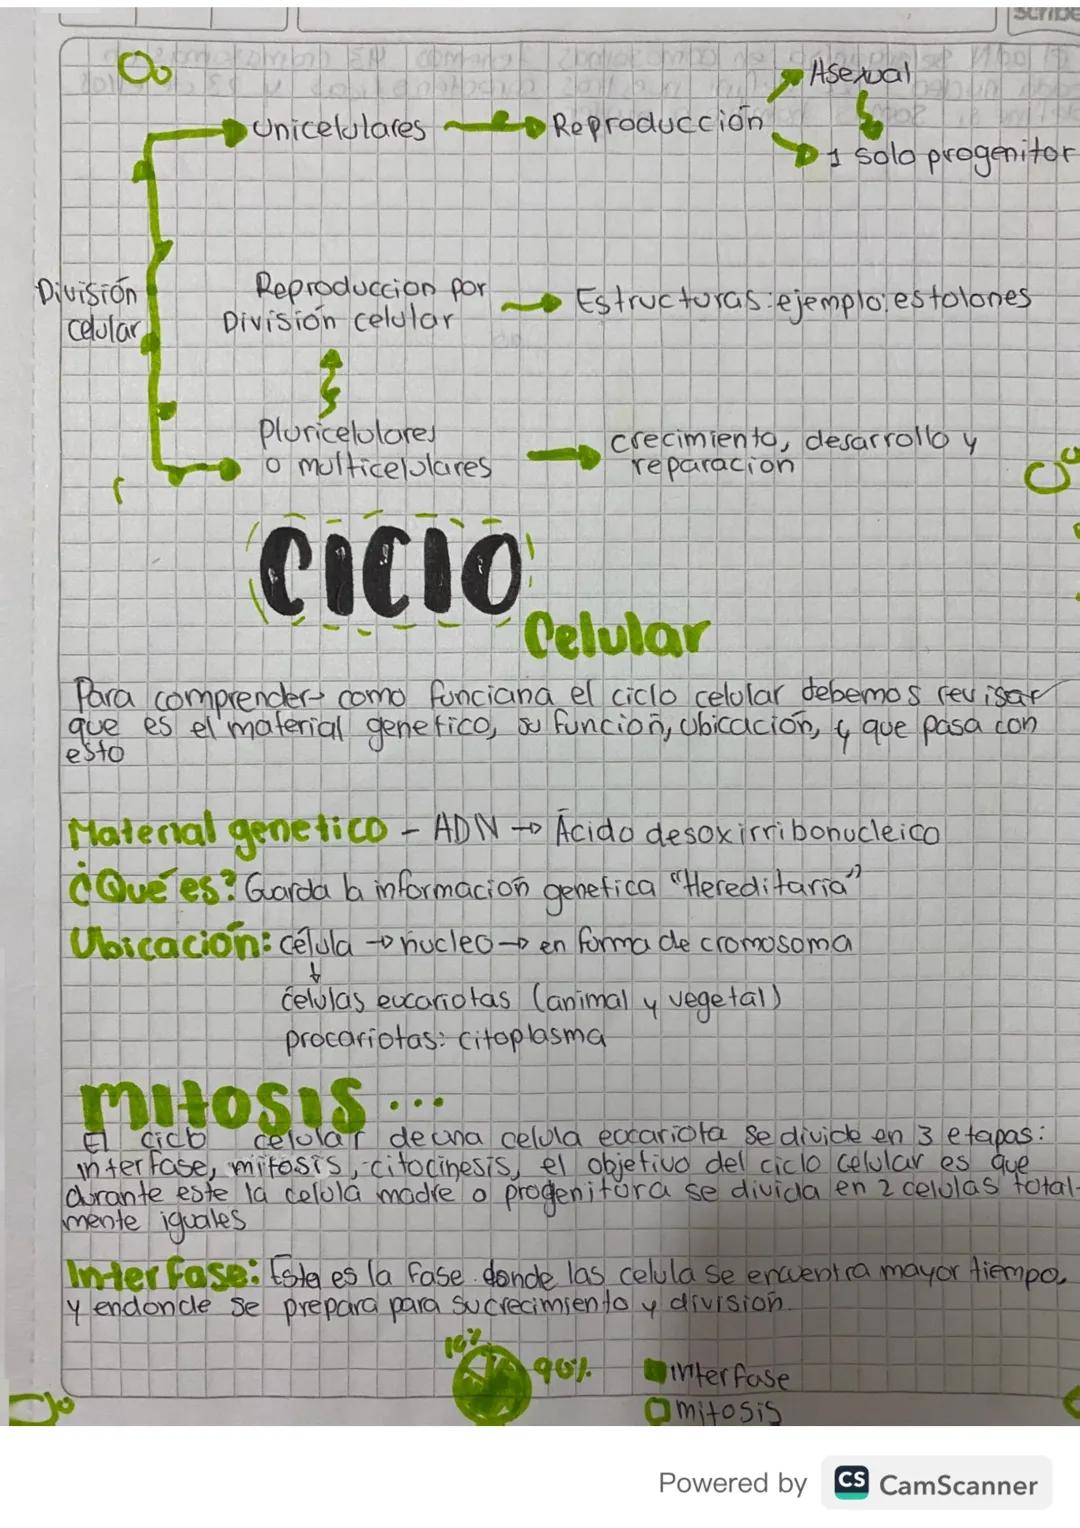 Scribe
Asexual
Unicelulares
Reproducción
1 solo progenitor
División
celular
Reproduccion por
División celular
Estructuras: ejemplo: estolones
Pluricelulares
o multicelulares
crecimiento, desarrollo y
reparacion
CICIO
Celular
Para comprender como funciana el ciclo celular debemos revisar
que es el material genetico, su función, ubicación, y que pasa con
esto
Material genetico - ADN → Ácido desoxirribonucleico
¿Qué es? Guarda la información genetica "Hereditaria"
Ubicación: célula → nucleo → en forma de cromosoma
↓
células eucariotas (animal y vegetal)
procariotas: citoplasma
mitosis...
El ciclo celular de una celula eucariota se divide en 3 etapas:
interfase, mitosis, citocinesis, el objetivo del ciclo celular es que
durante este la celula madre o progenitora se divida en 2 celulas total-
mente iguales
Interfase: Esta es la fase donde las celula se encuentra mayor tiempo,
y endonde se prepara para su crecimiento y división.
10%
90%
interfase
mitosis
Powered by CS CamScanner